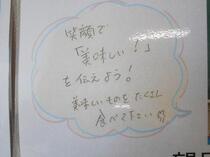 笑顔で
「美味しい！」
を伝えよう！
美味しいものをたくさん
食べて下さい